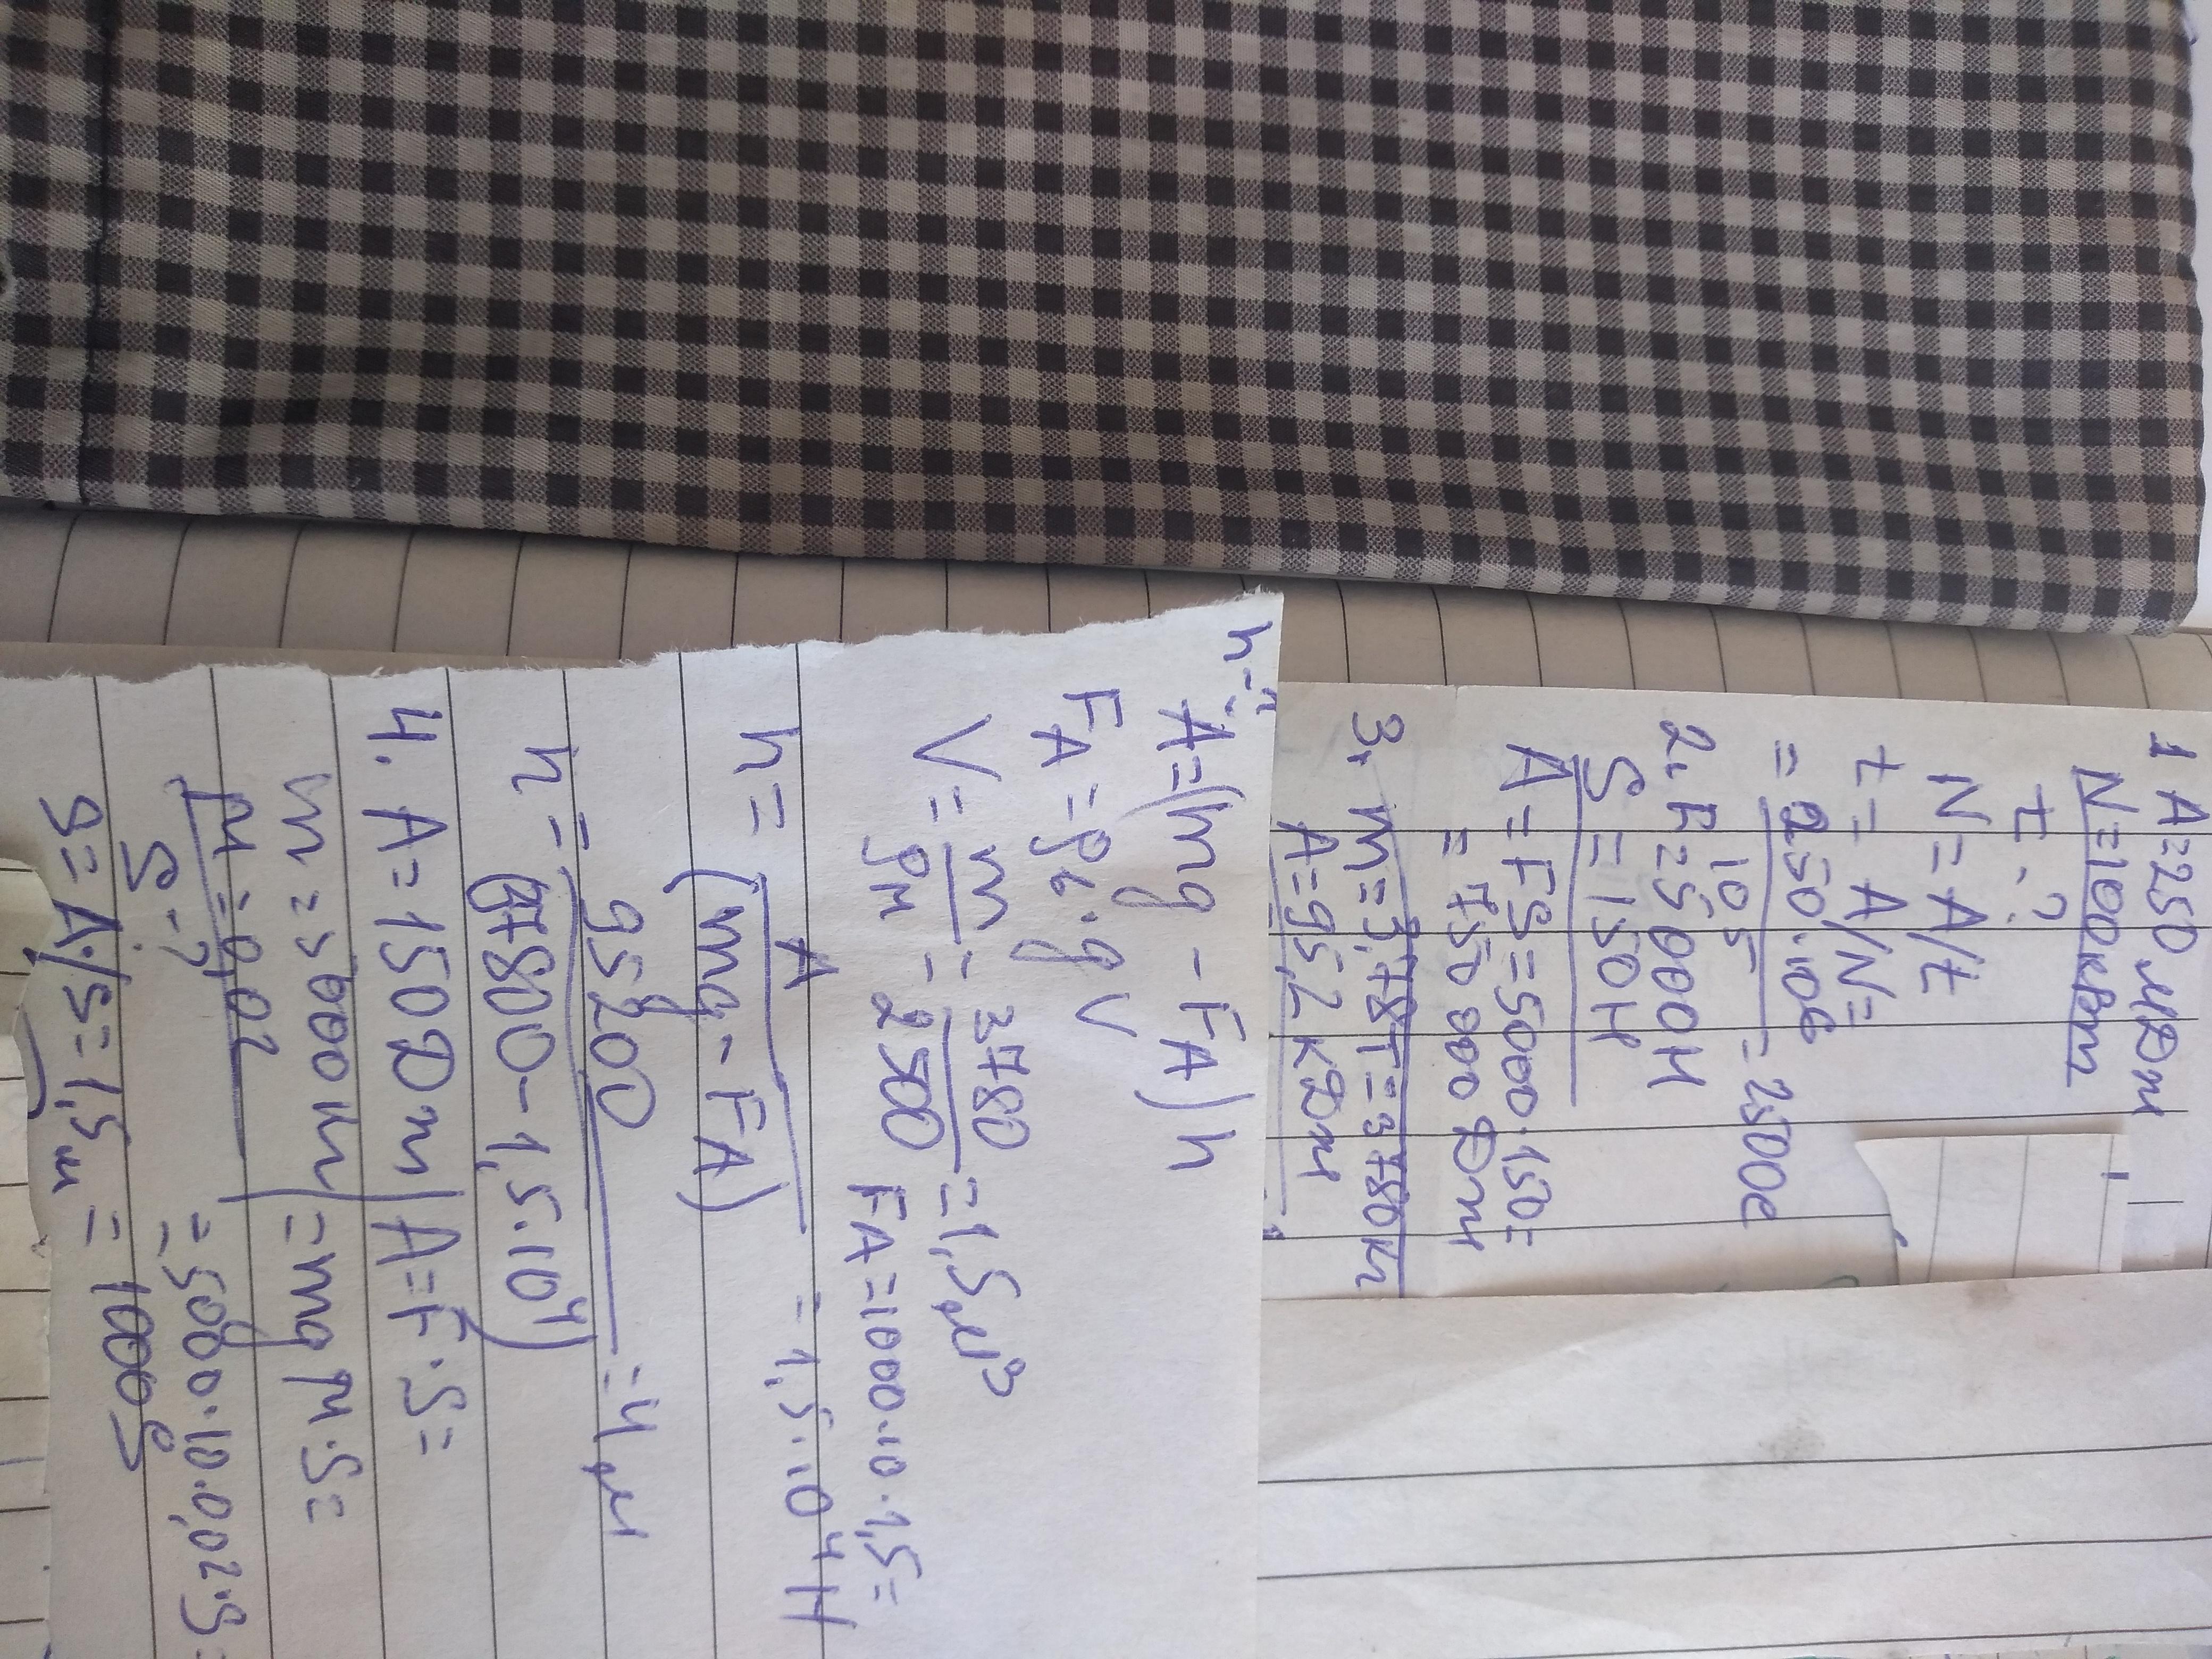 1 A=250 МДж
N=100кВт
t-?
N=A/t
t= A/N=
= 250·10⁶
10⁵ = 2500с
2. F=5000Н
S=150Н
A=FS=5000·150=
= 750 000 Дж
3. m=3,78т=3780кг
A=95,2 кДж
h-?
A=(mg-FA)h
FA=ρв·gV
V= m = 3780 =1,5м³
ρм 2500 FA=1000·10·1,5=
= 1,5·10⁴Н
h= A
(mg-FA)
h= 95200 =4м
(37800-1,5·10⁴)
4. A=150Дж A=F·S=
m=500кг =mgμ·S=
μ=0,02 =50·10·0,02·S=
S-?
S=A/S=1,5м =100S